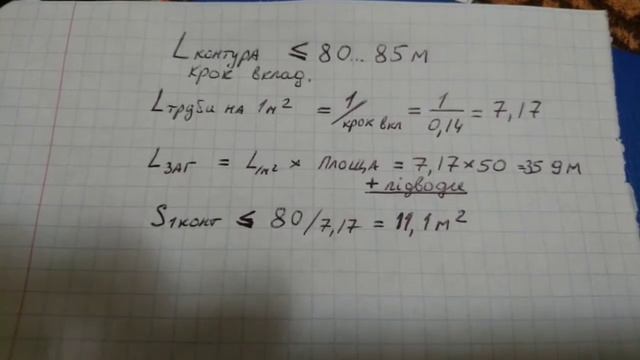 L контура ≤ 80...85 м
крок вклад.
L труби на 1м² = 1/крок вкл = 1/0,14 = 7,17
L заг = L/м² × площа = 7,17 × 50 = 359 м
+ підводи
S 1конт ≤ 80/7,17 = 11,1 м²